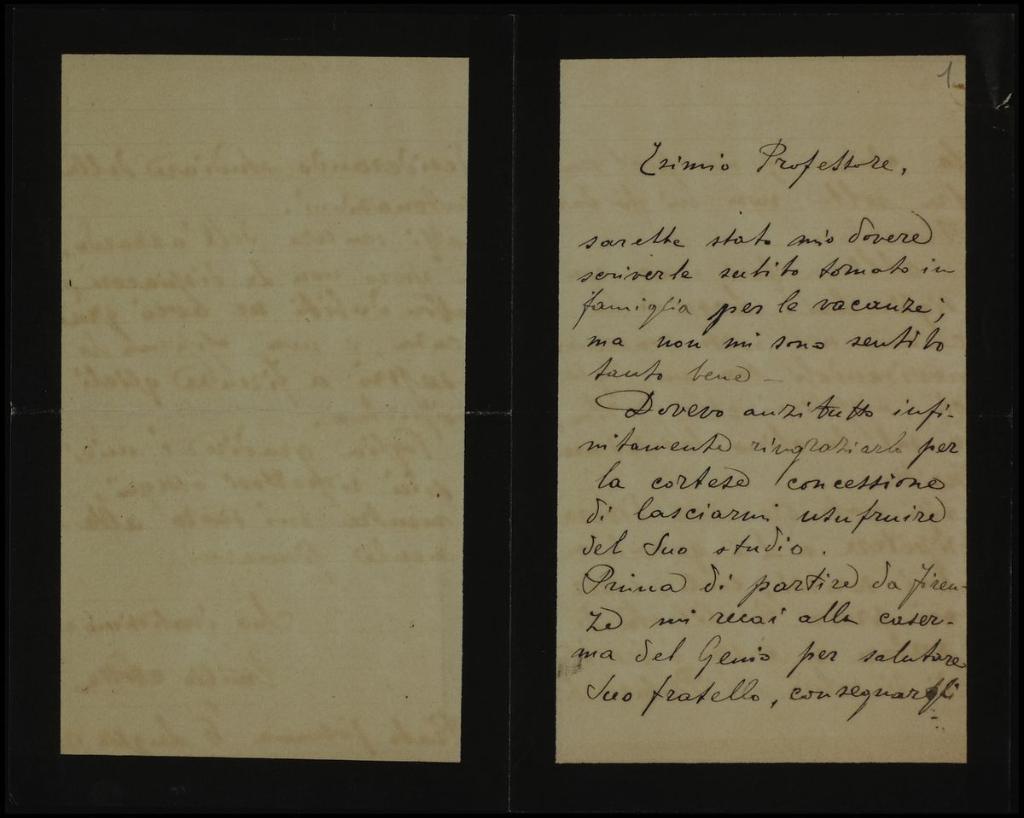 1
Esimio Professore,
sarebbe stato mio dovere
scriverle subito tornato in
famiglia per le vacanze;
ma non mi sono sentito
tanto bene -
Dovevo anzitutto infi-
nitamente ringraziarla per
la cortese concessione
di lasciarmi usufruire
del Suo studio.
Prima di partire da Firen-
ze mi recai alla caser-
ma del Genio per salutare
Suo fratello, consegnargli